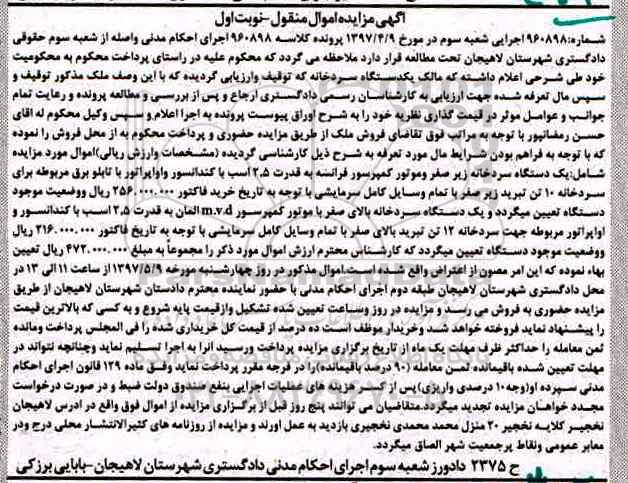 آگهی مزایده اموال منقول-نوبت اول
شماره:۹۶۰۸۹۸ اجرایی شعبه سوم در مورخ ۱۳۹۷/۴/۹ پرونده کلاسه ۹۶۰۸۹۸ اجرای احکام مدنی واصله از شعبه سوم حقوقی
دادگستری شهرستان لاهیجان تحت مطالعه قرار دارد ملاحظه می گردد که محکوم علیه در راستای پرداخت محکوم به محکومیت
خود طی شرحی اعلام داشته که مالک یکدستگاه سردخانه که توقیف وارزیابی گردیده که با این وصف ملک مذکور توقیف و
سپس مال تعرفه شده جهت ارزیابی به کارشناسان رسمی دادگستری ارجاع و پس از بررسی و مطالعه پرونده و رعایت تمام
جوانب و عوامل موثر در قیمت گذاری نظریه خود را به شرح اوراق پیوست پرونده به اجرا اعلام و سپس وکیل محکوم له اقای
حسن رمضانپور با توجه به مراتب فوق تقاضای فروش ملک از طریق مزایده حضوری و پرداخت محکوم به از محل فروش را نموده
که با توجه به فراهم بودن شرایط مال مورد تعرفه به شرح ذیل کارشناسی گردیده (مشخصات وارزش ریالی)اموال مورد مزایده
شامل:یک دستگاه سردخانه زیر صفر وموتور کمپرسور فرانسه به قدرت ۲٫۵ اسب با کندانسور واواپراتور با تابلو برق مربوطه برای
سردخانه ۱۰ تن تبرید زیر صفر با تمام وسایل کامل سرمایشی با توجه به تاریخ خرید فاکتور ۲۵۶٫۰۰۰٫۰۰۰ ریال ووضعیت موجود
دستگاه تعیین میگردد و یک دستگاه سردخانه بالای صفر با موتور کمپرسور m.v.d المان به قدرت ۲٫۵ اسب با کندانسور و
اواپراتور مربوطه جهت سردخانه ۱۲ تن تبرید بالای صفر با تمام وسایل کامل سرمایشی با توجه به تاریخ فاکتور ۲۱۶٫۰۰۰٫۰۰۰ ریال
ووضعیت موجود دستگاه تعیین میگردد که کارشناس محترم ارزش اموال مورد ذکر را مجموعاً به مبلغ ۴۷۲٫۰۰۰٫۰۰۰ ریال تعیین
بهاء نموده که این امر مصون از اعتراض واقع شده است.اموال مذکور در روز چهارشنبه مورخه ۱۳۹۷/۵/۸ از ساعت ۱۱ الی ۱۳ در
محل دادگستری شهرستان لاهیجان طبقه دوم اجرای احکام مدنی با حضور نماینده محترم دادستان شهرستان لاهیجان از طریق
مزایده حضوری به فروش می رسد و مزایده در روز وساعت تعیین شده تشکیل وازقیمت پایه شروع و به کسی که بالاترین قیمت
را پیشنهاد نماید فروخته خواهد شد وخریدار موظف است ده درصد از قیمت کل خریداری شده را فی المجلس پرداخت ومانده
ثمن معامله را حداکثر ظرف مهلت یک ماه از تاریخ برگزاری مزایده پرداخت ورسید انرا به اجرا تسلیم نماید وچنانچه نتواند در
مهلت تعیین شده باقیمانده ثمن معامله (۹۰ درصد باقیمانده)را در فرجه مقرر پرداخت نماید وفق ماده ۱۲۹ قانون اجرای احکام
مدنی سپرده او(وجه۱۰ درصدی واریزی)پس از کسر هزینه های عملیات اجرایی بنفع صندوق دولت ضبط و در صورت درخواست
مجدد خواهان مزایده تجدید میگردد.متقاضیان می توانند پنج روز قبل از برگزاری مزایده از اموال فوق واقع در ادرس لاهیجان
نخجیر کلایه نخجیر ۲۰ منزل محمد محمدی نخجیری بازدید به عمل اورند و مزایده از روزنامه های کثیرالانتشار محلی درج ودر
معابر عمومی ونقاط پرجمعیت شهر الصاق میگردد.
ح ۲۳۷۵ دادورز شعبه سوم اجرای احکام مدنی دادگستری شهرستان لاهیجان-بابایی برزکی